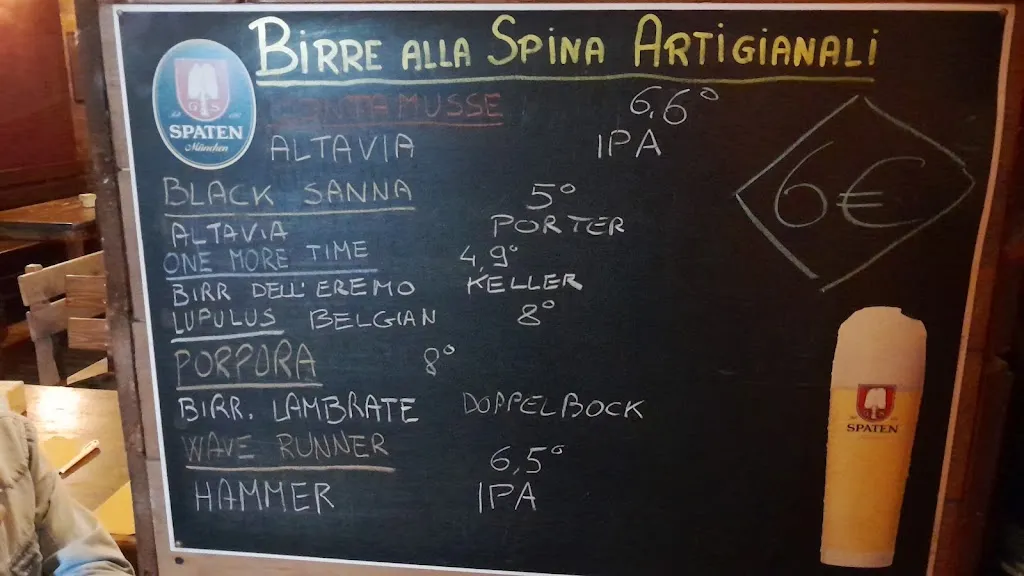 BIRRE ALLA SPINA ARTIGIANALI
SPATEN
München
MUSSE 6,6°
ALTAVIA IPA
6€
BLACK SANNA 5°
ALTAVIA PORTER
ONE MORE TIME 4,9°
BIRR DELL'EREMO KELLER
LUPULUS BELGIAN 8°
PORPORA 8°
BIRR. LAMBRATE DOPPELBOCK
WAVE RUNNER 6,5°
HAMMER IPA
SPATEN